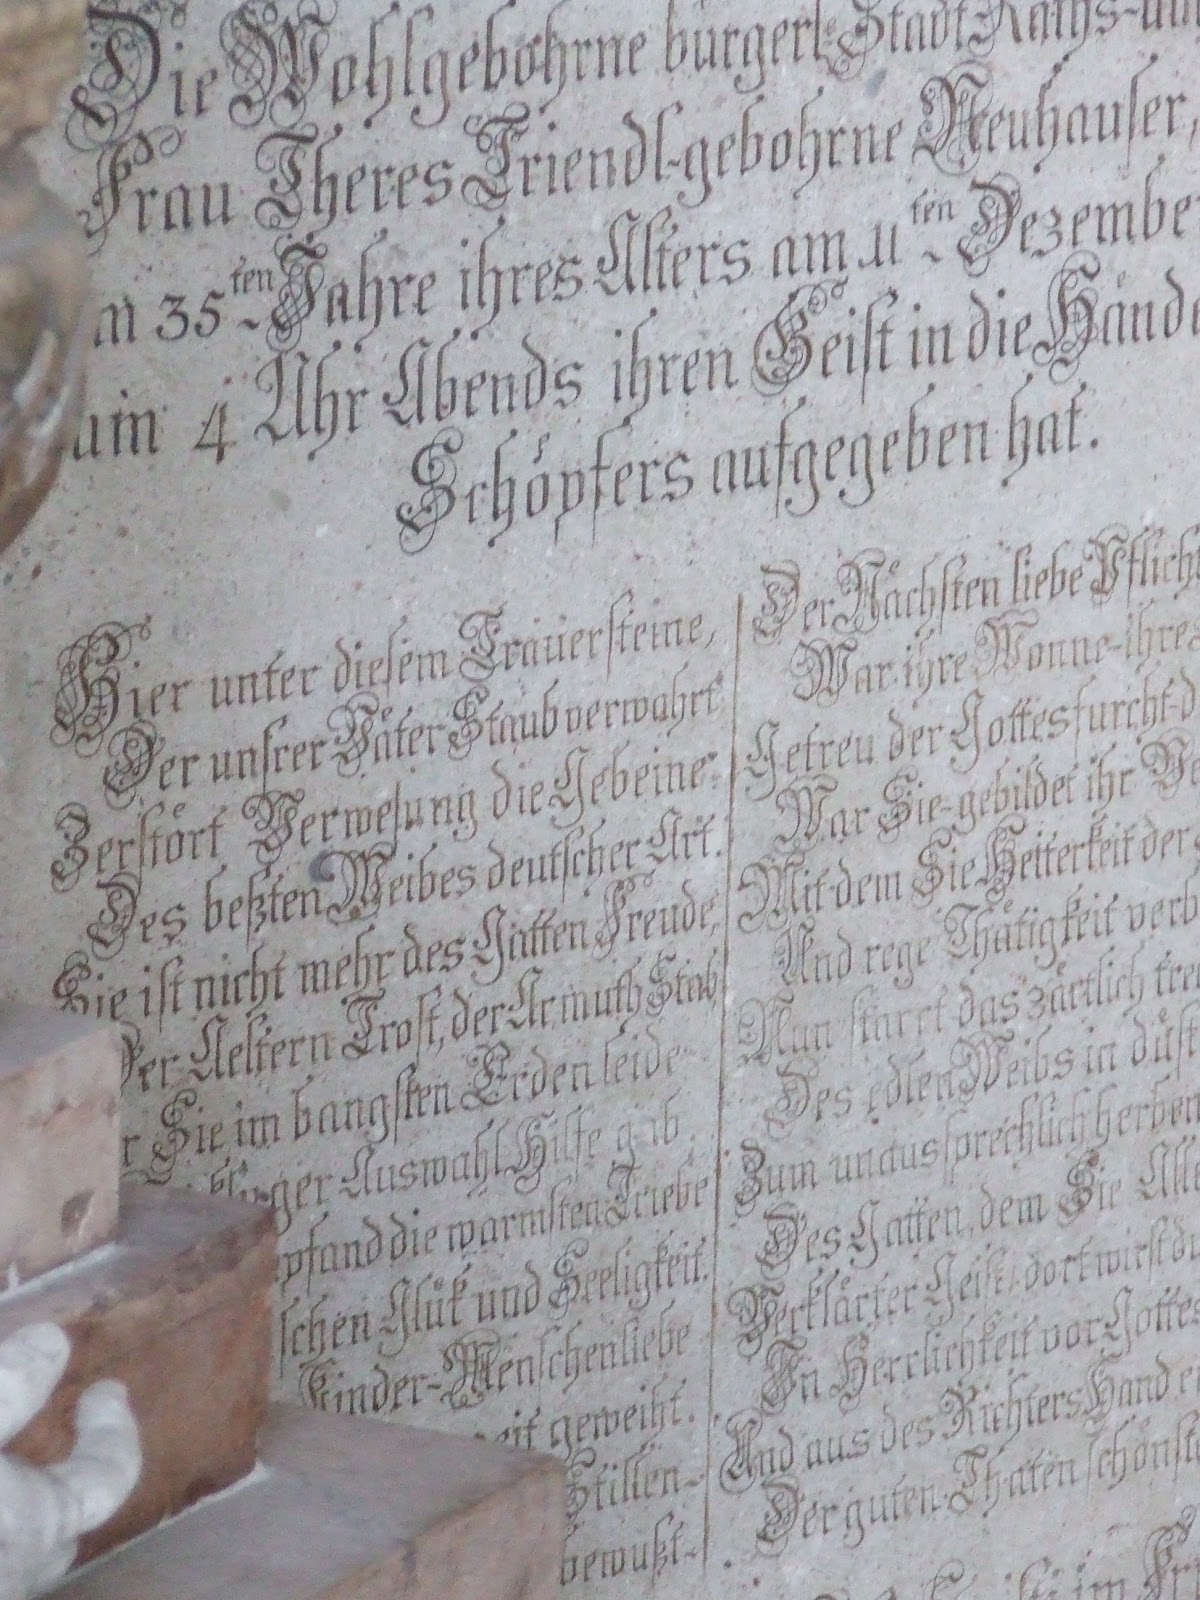 Die Wohlgebohrne bürgerl: Stadt Raths-
Frau Theres Triendl-gebohrne Neuhauser,
35ten Jahre ihres Alters am 11ten Dezembe
um 4 Uhr Abends ihren Geist in die Hände
Schöpfers aufgegeben hat.
Hier unter diesem Trauersteine,
Der unsrer Väter Staub verwahrt
Zerstört Verwesung die Gebeine
Des beßten Weibes deutscher Art.
Sie ist nicht mehr des Gatten Freude,
Der Aeltern Trost, der Armuth Stab
Sie im bangsten Erdenleide
Auswahl Hilfe gab
pfand die warmsten Triebe
schen Glük und Seeligkeit.
Kinder-Menschenliebe
eit geweiht.
Stillen-
bewußt-
Der Nächsten liebe Pflicht
War ihre Wonne-ihres
Getreu der Gottesfurcht-d
War Sie-gebildet ihr Ve
Mit dem Sie Heiterkeit der
Und rege Thätigkeit verb
Nun starrt das zärtlich tre
Des edlen Weibs in düst
Zum unaussprechlich herben
Des Gatten, dem Sie Alle
Verklärter Geist, dort wirst du
In Herrlichkeit vor Gottes
Und aus des Richters Hand e
Der guten Thaten schönst
im Fr